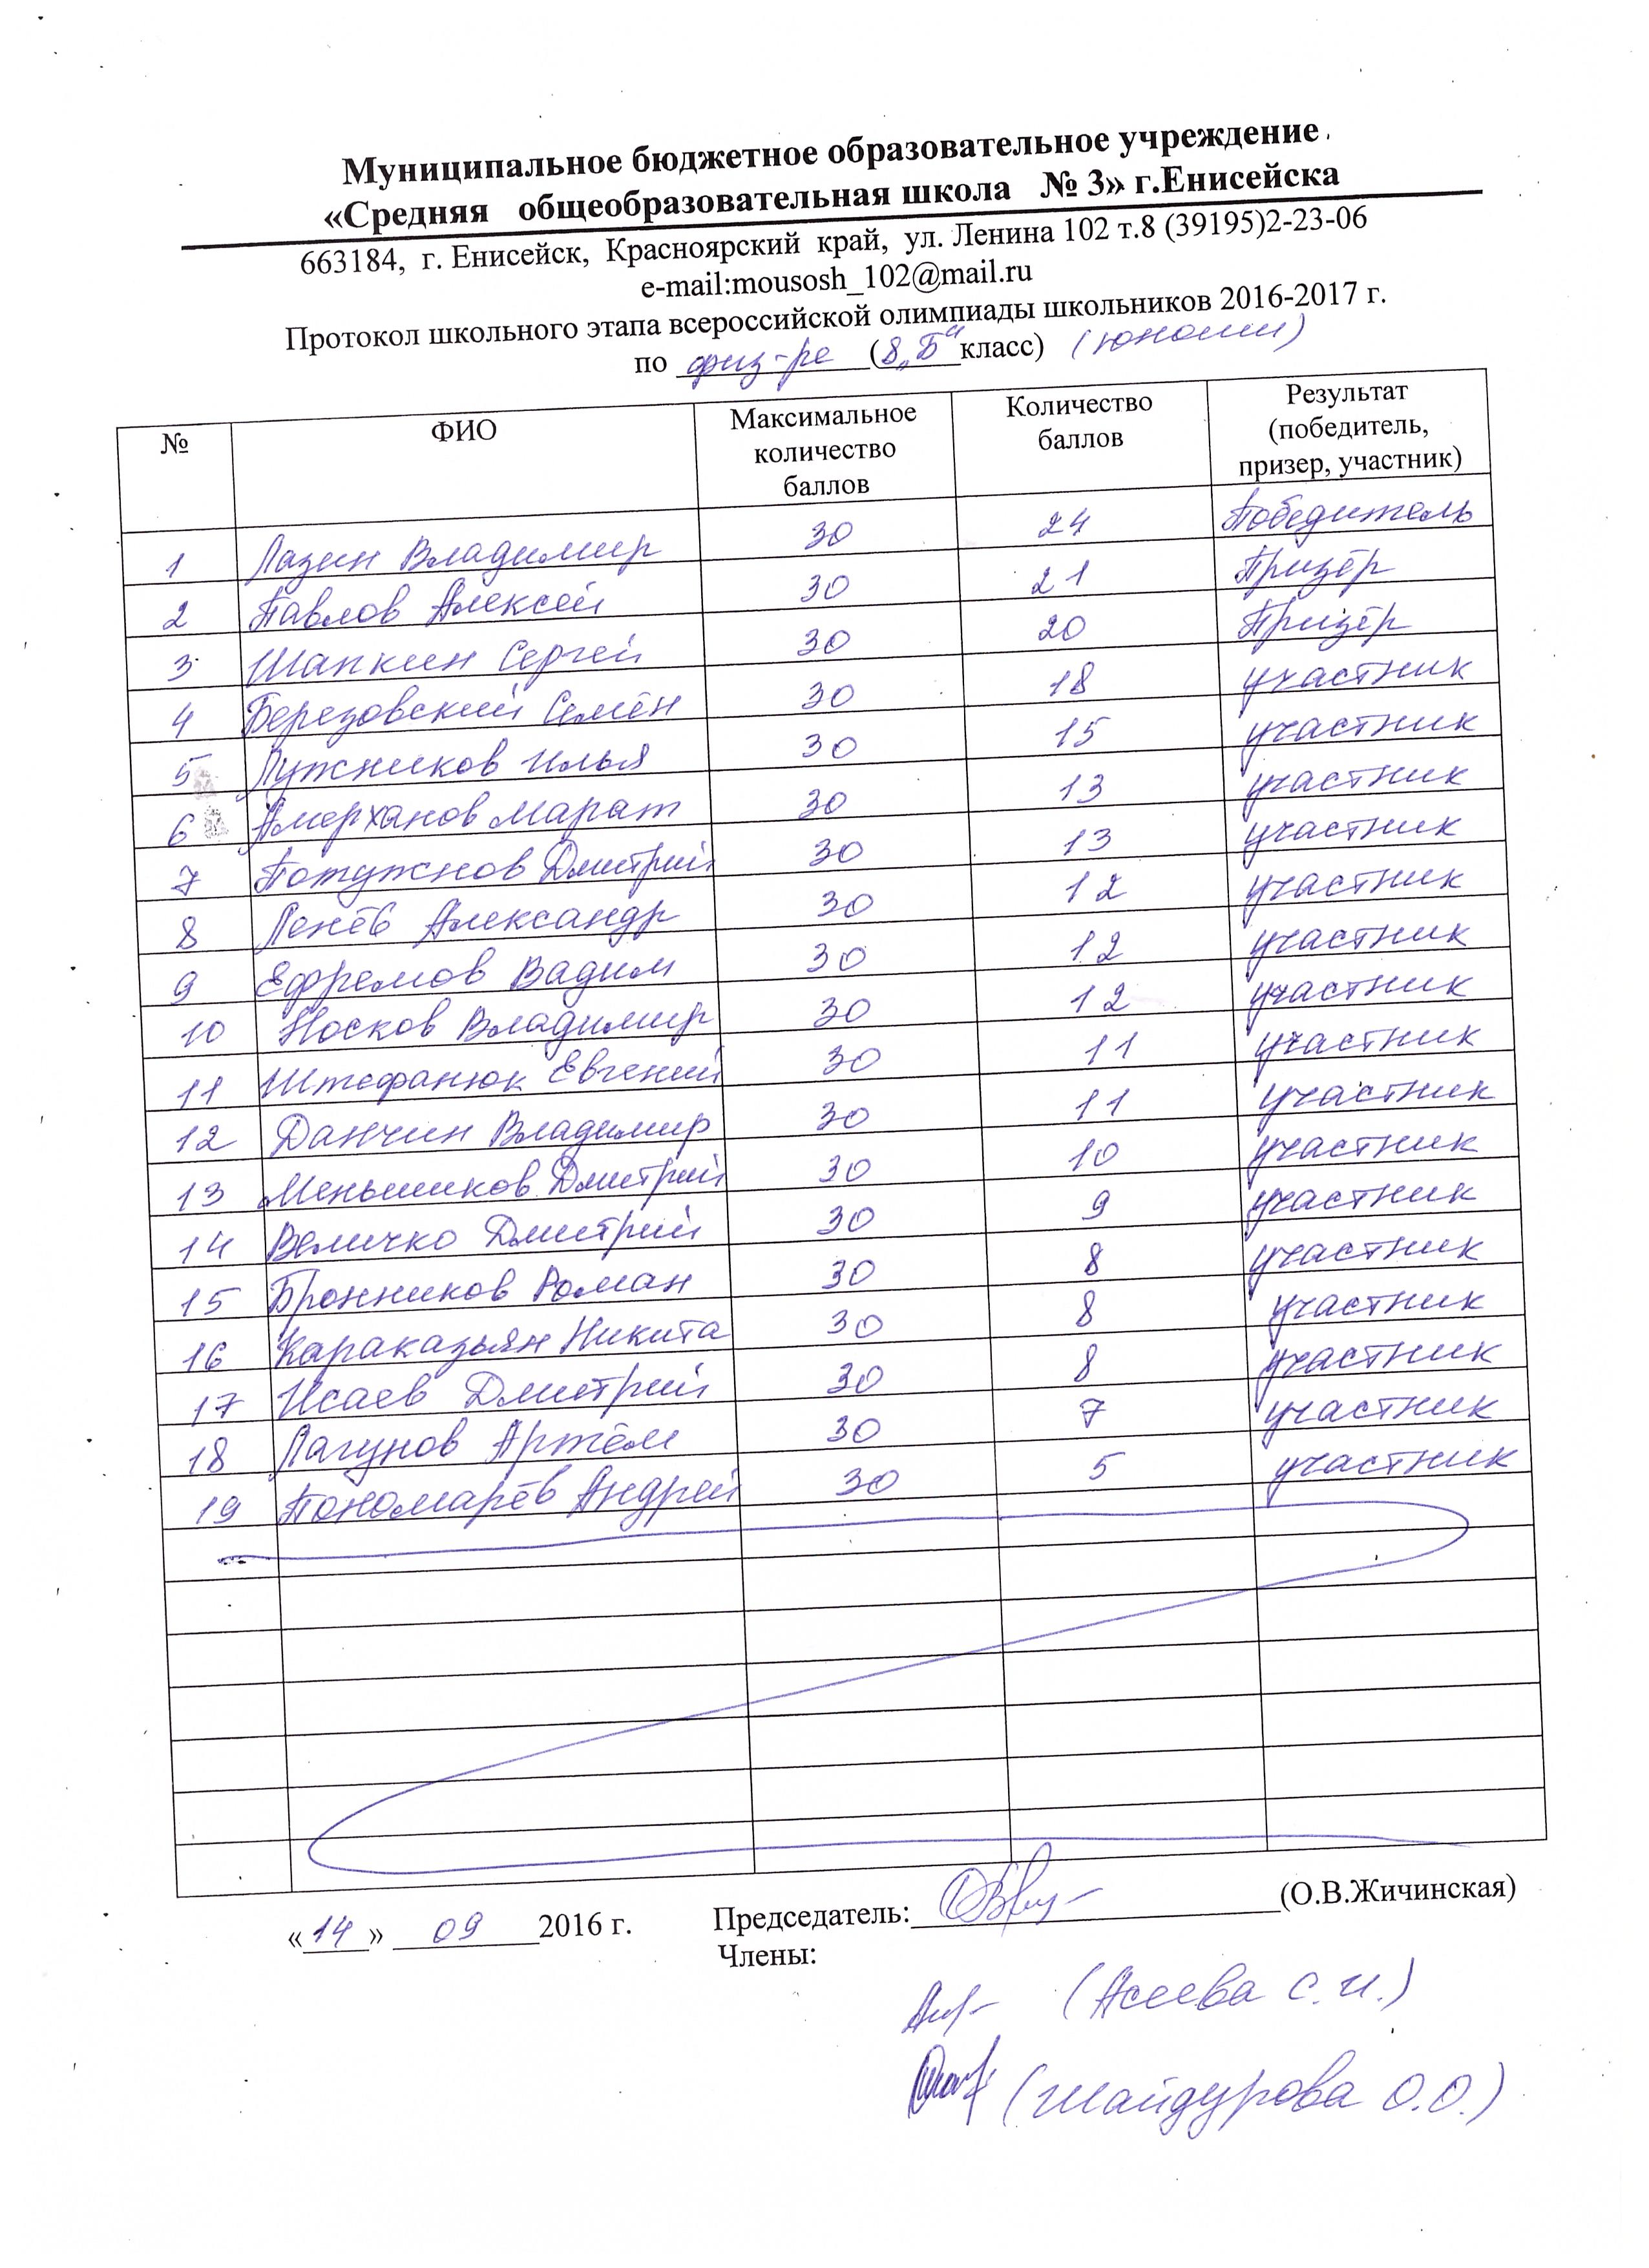 Муниципальное бюджетное образовательное учреждение
«Средняя общеобразовательная школа № 3» г.Енисейска
663184, г. Енисейск, Красноярский край, ул. Ленина 102 т.8 (39195)2-23-06
e-mail:mousosh_102@mail.ru
Протокол школьного этапа всероссийской олимпиады школьников 2016-2017 г.
по физ-ре (8 „Б“ класс) (юноши)
№ ФИО Максимальное количество баллов Количество баллов Результат (победитель, призер, участник)
1 Лазин Владимир 30 24 Победитель
2 Павлов Алексей 30 21 Призёр
3 Шапкин Сергей 30 20 Призёр
4 Березовский Семён 30 18 участник
5 Лужников Илья 30 15 участник
6 Амерханов Марат 30 13 участник
7 Потужнов Дмитрий 30 13 участник
8 Ленёв Александр 30 12 участник
9 Ефремов Вадим 30 12 участник
10 Носков Владимир 30 12 участник
11 Штефанюк Евгений 30 11 участник
12 Данчин Владимир 30 11 участник
13 Меньшиков Дмитрий 30 10 участник
14 Величко Дмитрий 30 9 участник
15 Бронников Роман 30 8 участник
16 Караказьян Никита 30 8 участник
17 Исаев Дмитрий 30 8 участник
18 Лагунов Артём 30 7 участник
19 Пономарёв Андрей 30 5 участник
«14» 09 2016 г. Председатель: (О.В.Жичинская)
Члены:
(Асеева С.И.)
(Шайдурова О.О.)